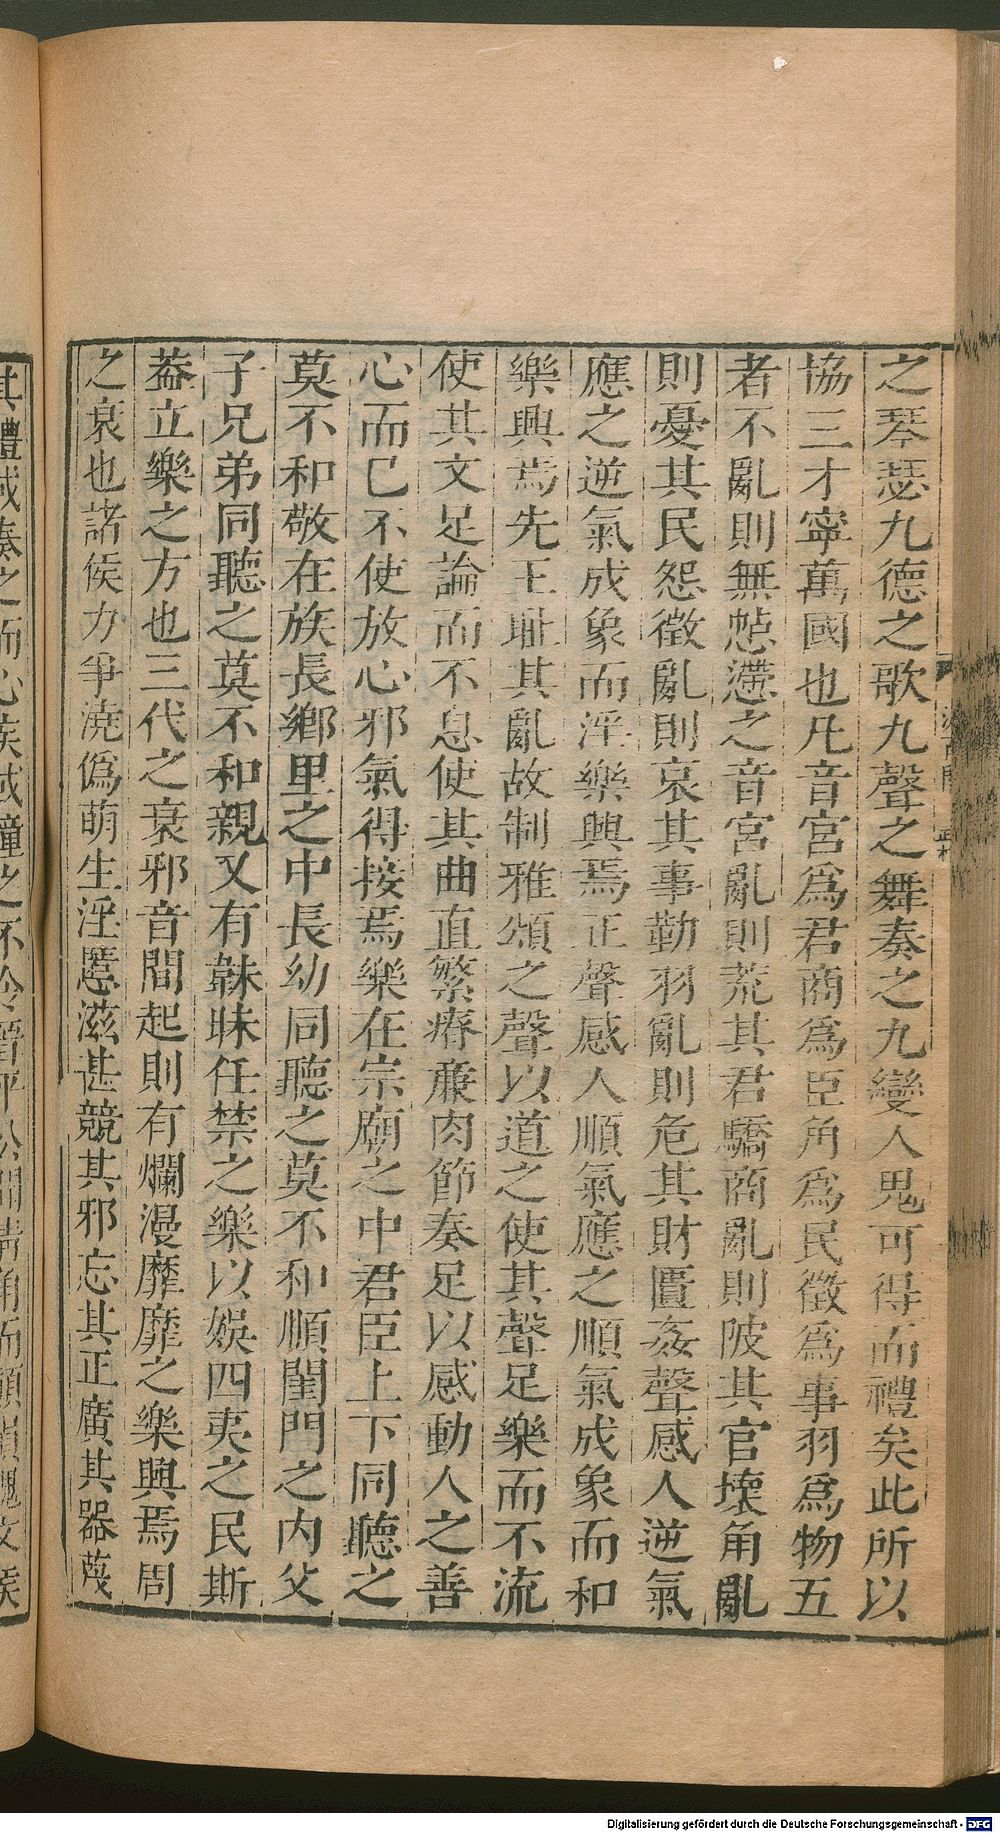 之琴瑟九德之歌九聲之舞奏之九變人鬼可得而禮矣此所以
協三才寧萬國也凡音宮爲君商爲臣角爲民徵爲事羽爲物五
者不亂則無怗懘之音宮亂則荒其君驕商亂則陂其官壞角亂
則憂其民怨徵亂則哀其事勤羽亂則危其財匱姦聲感人逆氣
應之逆氣成象而淫樂興焉正聲感人順氣應之順氣成象而和
樂興焉先王恥其亂故制雅頌之聲以道之使其聲足樂而不流
使其文足論而不息使其曲直繁瘠廉肉節奏足以感動人之善
心而已不使放心邪氣得接焉樂在宗廟之中君臣上下同聽之
莫不和敬在族長鄉里之中長幼同聽之莫不和順閨門之內父
子兄弟同聽之莫不和親又有韎昧任禁之樂以娛四夷之民斯
葢立樂之方也三代之衰邪音間起則有爛漫靡靡之樂興焉周
之衰也諸侯力爭澆僞萌生淫慝滋甚競其邪忘其正廣其器蔑
其禮或奏之而心疾或撞之不令晉平公聞清角而顛隕魏文侯
Digitalisierung gefördert durch die Deutsche Forschungsgemeinschaft - DFG